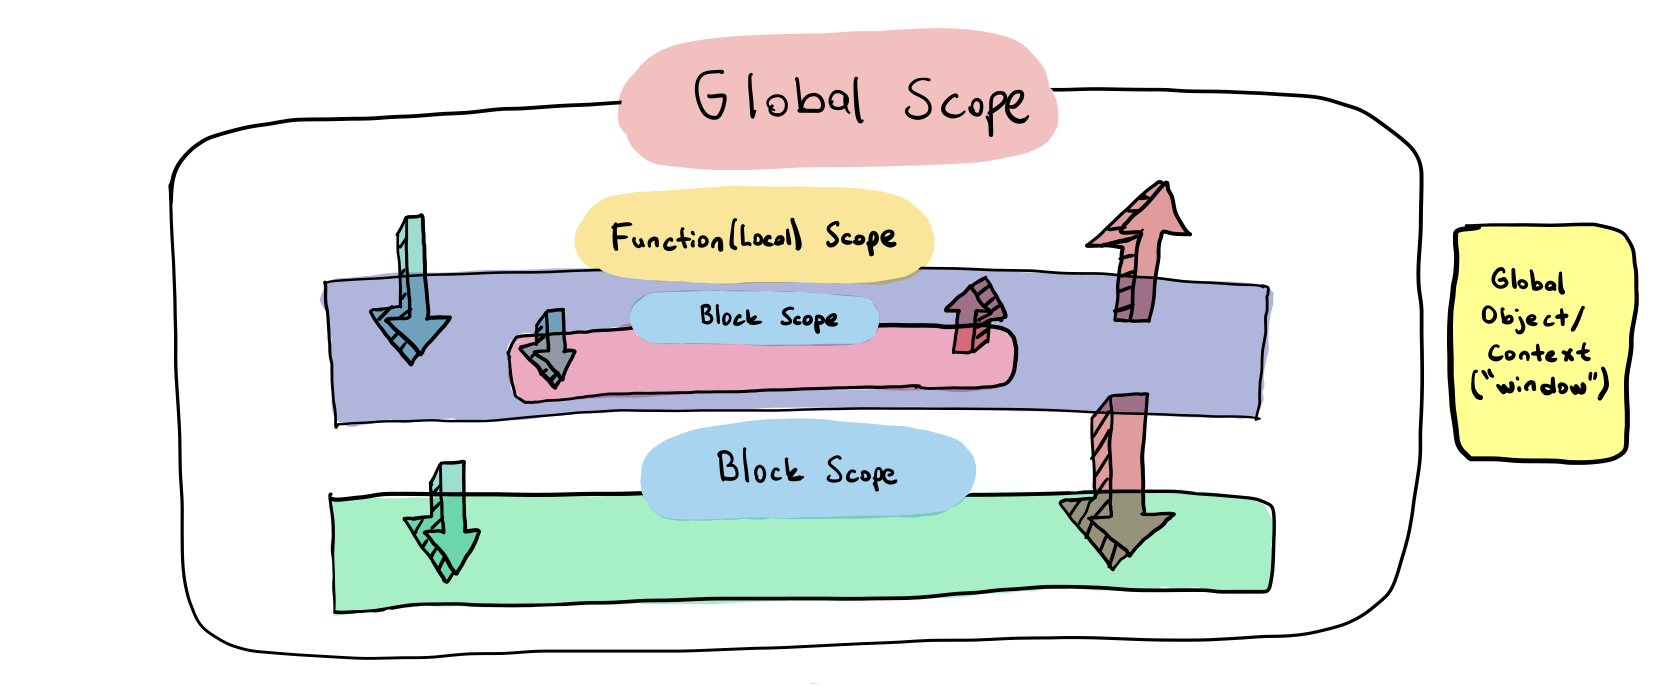 Global Scope
Function(Local) Scope
Block Scope
Block Scope
Global
Object/
Context
("window")